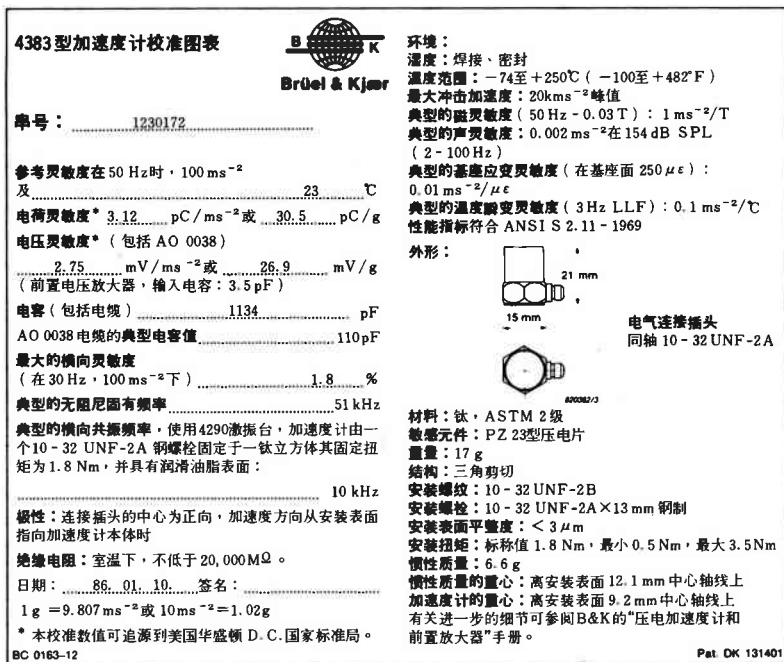 4383型加速度计校准图表
B K
Brüel & Kjær
串号：1230172
参考灵敏度在 50 Hz时，100 ms⁻²
及 23 ℃
电荷灵敏度* 3.12 pC/ms⁻²或 30.5 pC/g
电压灵敏度*（包括 AO 0038）
2.75 mV/ms⁻²或 26.9 mV/g
（前置电压放大器，输入电容：3.5 pF）
电容（包括电缆） 1134 pF
AO 0038 电缆的典型电容值 110 pF
最大的横向灵敏度
（在30 Hz，100 ms⁻²下） 1.8 %
典型的无阻尼固有频率 51 kHz
典型的横向共振频率，使用4290激振台，加速度计由一
个10-32 UNF-2A 钢螺栓固定于一钛立方体其固定扭
矩为1.8 Nm，并具有润滑油脂表面：
10 kHz
极性：连接插头的中心为正向，加速度方向从安装表面
指向加速度计本体时
绝缘电阻：室温下，不低于 20,000MΩ。
日期：86. 01. 10. 签名：
1 g =9.807 ms⁻²或 10ms⁻²=1.02g
* 本校准数值可追源到美国华盛顿 D.C.国家标准局。
BC 0163-12
环境：
湿度：焊接、密封
温度范围：-74至+250℃（-100至+482°F）
最大冲击加速度：20kms⁻²峰值
典型的磁灵敏度（50 Hz - 0.03 T）：1 ms⁻²/T
典型的声灵敏度：0.002 ms⁻²在154 dB SPL
（2-100 Hz）
典型的基座应变灵敏度（在基座面 250 με）：
0.01 ms⁻²/με
典型的温度瞬变灵敏度（3Hz LLF）：0.1 ms⁻²/℃
性能指标符合 ANSI S 2.11-1969
外形：
21 mm
15 mm
电气连接插头
同轴 10-32 UNF-2A
820362/3
材料：钛，ASTM 2级
敏感元件：PZ 23型压电片
重量：17 g
结构：三角剪切
安装螺纹：10-32 UNF-2B
安装螺栓：10-32 UNF-2A×13 mm 钢制
安装表面平整度：<3 μm
安装扭矩：标称值 1.8 Nm，最小 0.5 Nm，最大 3.5 Nm
惯性质量：6.6 g
惯性质量的重心：离安装表面 12.1 mm 中心轴线上
加速度计的重心：离安装表面 9.2 mm 中心轴线上
有关进一步的细节可参阅B&K的“压电加速度计和
前置放大器”手册。
Pat. DK 131401